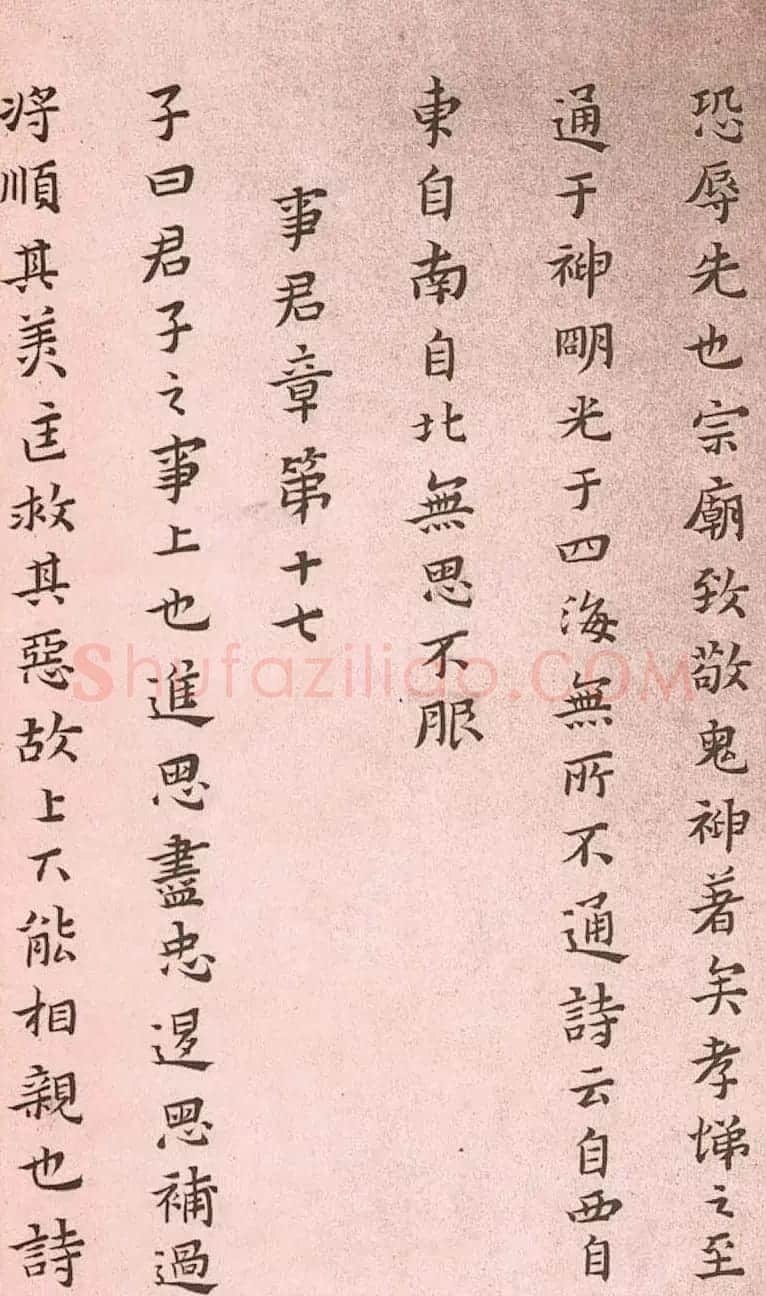 恐辱先也宗廟致敬鬼神著矣孝悌之至
通于神明光于四海無所不通詩云自西自
東自南自北無思不服
事君章第十七
子曰君子之事上也進思盡忠退思補過
将順其美匡救其惡故上下能相親也詩
Shufazilido.COM